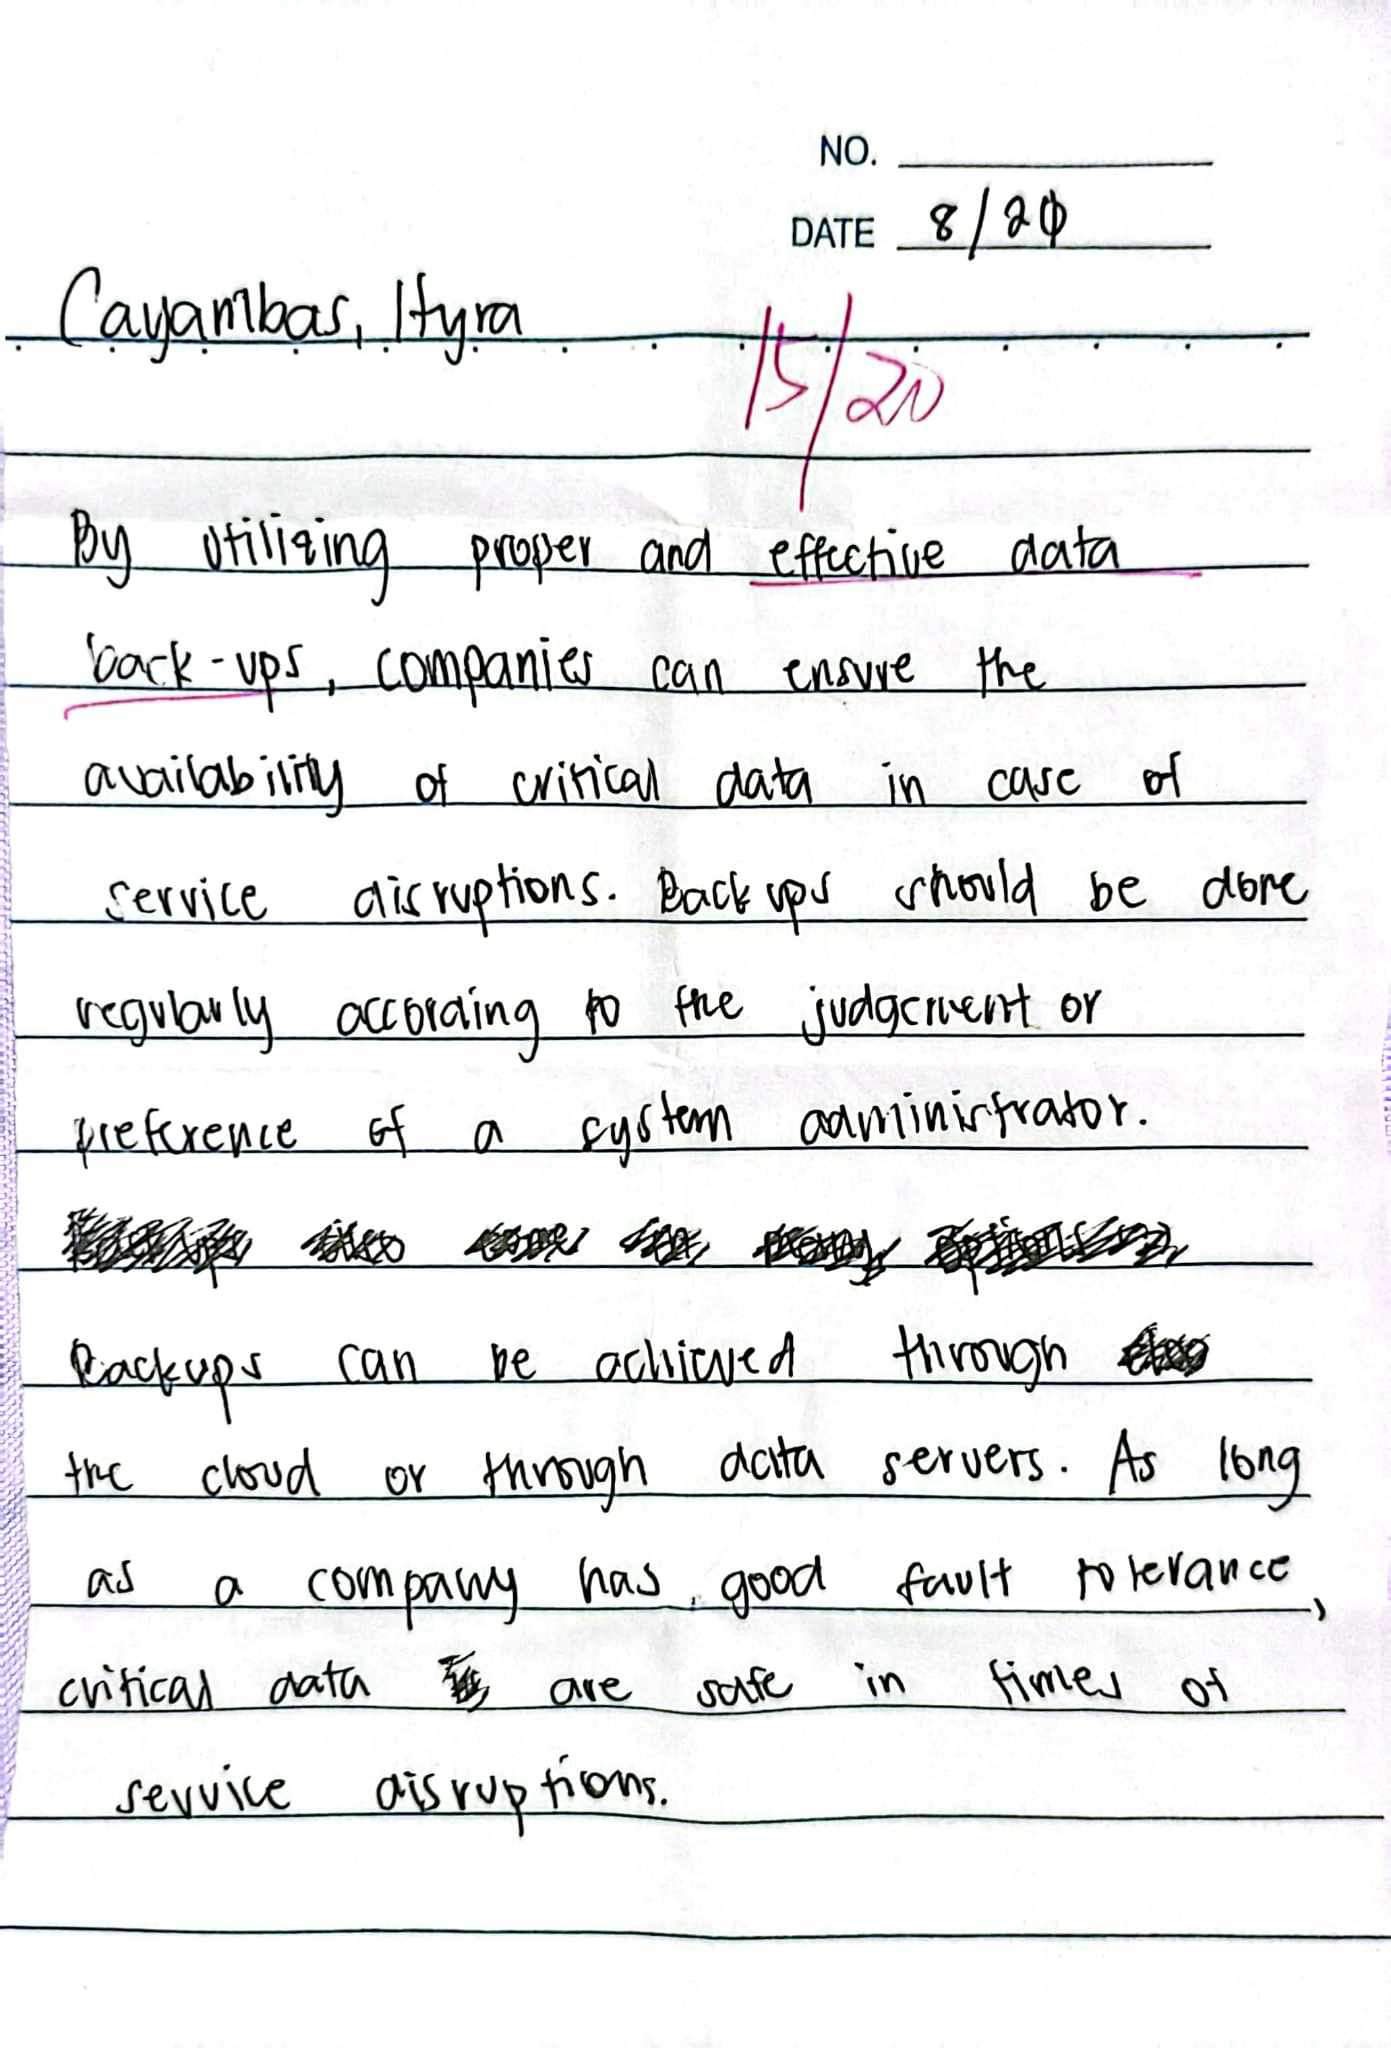 NO.
DATE 8/20
Cayambas, Ityra
15/20
By utilizing proper and effective data
back-ups, companies can ensure the
availability of critical data in case of
service disruptions. Backups should be done
regularly according to the judgement or
preference of a system administrator.
Backups can be achieved through
the cloud or through data servers. As long
as a company has good fault tolerance,
critical data are safe in times of
service disruptions.